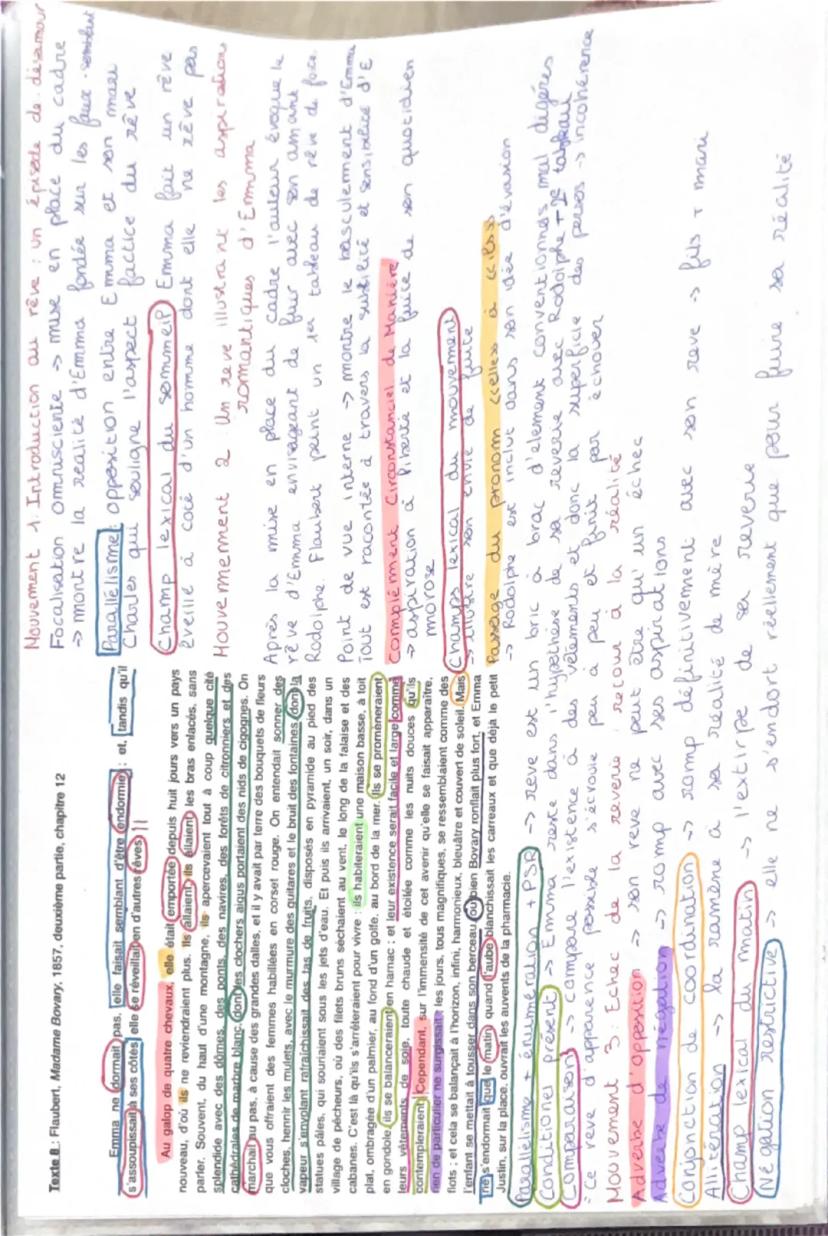 Texte 8 : Flaubert, Madame Bovary, 1857, deuxième partie, chapitre 12
Emma ne dormait pas, elle faisait semblant d'être endormie ; et, tandis qu'il
s'assoupissait à ses côtés, elle se réveillait en d'autres rêves. ||
Au galop de quatre chevaux, elle était emportée depuis huit jours vers un pays
nouveau, d'où ils ne reviendraient plus. Ils allaient, ils allaient, les bras enlacés, sans
parler. Souvent, du haut d'une montagne, ils apercevaient tout à coup quelque cité
splendide avec des dômes, des ponts, des navires, des forêts de citronniers et des
cathédrales de marbre blanc, dont les clochers aigus portaient des nids de cigognes. On
marchait au pas, à cause des grandes dalles, et il y avait par terre des bouquets de fleurs
que vous offraient des femmes habillées en corset rouge. On entendait sonner des
cloches, hennir les mulets, avec le murmure des guitares et le bruit des fontaines, dont la
vapeur s'envolant rafraîchissait des tas de fruits, disposés en pyramide au pied des
statues pâles, qui souriaient sous les jets d'eau. Et puis ils arrivaient, un soir, dans un
village de pêcheurs, où des filets bruns séchaient au vent, le long de la falaise et des
cabanes. C'est là qu'ils s'arrêteraient pour vivre : ils habiteraient une maison basse, à toit
plat, ombragée d'un palmier, au fond d'un golfe, au bord de la mer. Ils se promèneraient
en gondole, ils se balanceraient en hamac ; et leur existence serait facile et large comme
leurs vêtements de soie, toute chaude et étoilée comme les nuits douces qu'ils
contempleraient. Cependant, sur l'immensité de cet avenir qu'elle se faisait apparaître,
rien de particulier ne surgissait ; les jours, tous magnifiques, se ressemblaient comme des
flots ; et cela se balançait à l'horizon, infini, harmonieux, bleuâtre et couvert de soleil. Mais
l'enfant se mettait à tousser dans son berceau, ou bien Bovary ronflait plus fort, et Emma
ne s'endormait que le matin, quand l'aube blanchissait les carreaux et que déjà le petit
Justin, sur la place, ouvrait les auvents de la pharmacie.
Mouvement 1: Introduction au rêve : un épisode de désamour
Focalisation omnisciente -> mise en place du cadre
-> montre la réalité d'Emma fondée sur les faux-semblant
Parallélisme: opposition entre Emma et son mari
Charles qui souligne l'aspect factice du rêve
Champ lexical du sommeil? Emma fait un rêve
éveillé à coté d'un homme dont elle ne rêve pas
Mouvement 2 Un reve illustrant les aspirations
romantiques d'Emma
Après la mise en place du cadre l'auteur évoque le
rêve d'Emma envisageant de fuir avec son amant
Rodolphe. Flaubert peint un 1er tableau de rêve de fuite.
Point de vue interne -> montre le basculement d'Emma
Tout est racontée à travers la subtilité et sensibilité d'E
Complément Circonstanciel de Manière
-> aspiration à liberté et la fuite de son quotidien
morose
Champs lexical du mouvement
-> illustre son envie de fuite
Passage du pronom «elle» à «ils»
-> Rodolphe est inclut dans son idée d'évasion
Parallélisme + énumération + PSR -> reve est un bric à brac d'element conventionnés mal digérés
Conditionel présent -> Emma reste dans l'hypothèse de sa reverie avec Rodolphe + 2e tableau
Comparaison -> compare l'existence à des vêtements et donc la superficie des persos -> incohérence
-Ce reve d'apparence possible s'écroule peu à peu et finit par échouer
Mouvement 3: Echec de la reverie, retour à la réalité
Adverbe d'opposition -> son reve ne peut être qu'un échec
Adverbe de négation -> romp avec ses aspirations
Conjonction de coordination -> romp définitivement avec son reve -> fils + mari
Allitération -> la ramène à sa réalité de mère
Champ lexical du matin -> l'extirpe de sa reverie
Négation restrictive -> elle ne s'endort réellement que pour fuire sa réalité